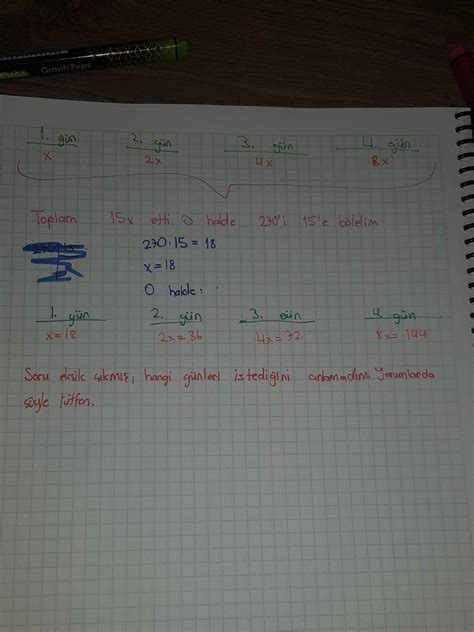 Graph'Peps
1. gün 2. gün 3. gün 4. gün
x 2x 4x 8x
Toplam 15x etti. O halde 270'i 15'e bölelim
270:15 = 18
x=18
O halde:
1. gün 2. gün 3. gün 4. gün
x=18 2x=36 4x=72 8x=144
Soru eksik çıkmış, hangi günleri istediğini anlamadım. Yorumlarda
söyle lütfen.